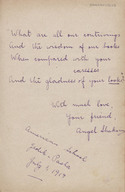 What are all our contrivings
And the wisdom of our books
When compared with your
caresses
And the gladness of your looks?
With much love,
Your friend,
American School
July 5, 1917